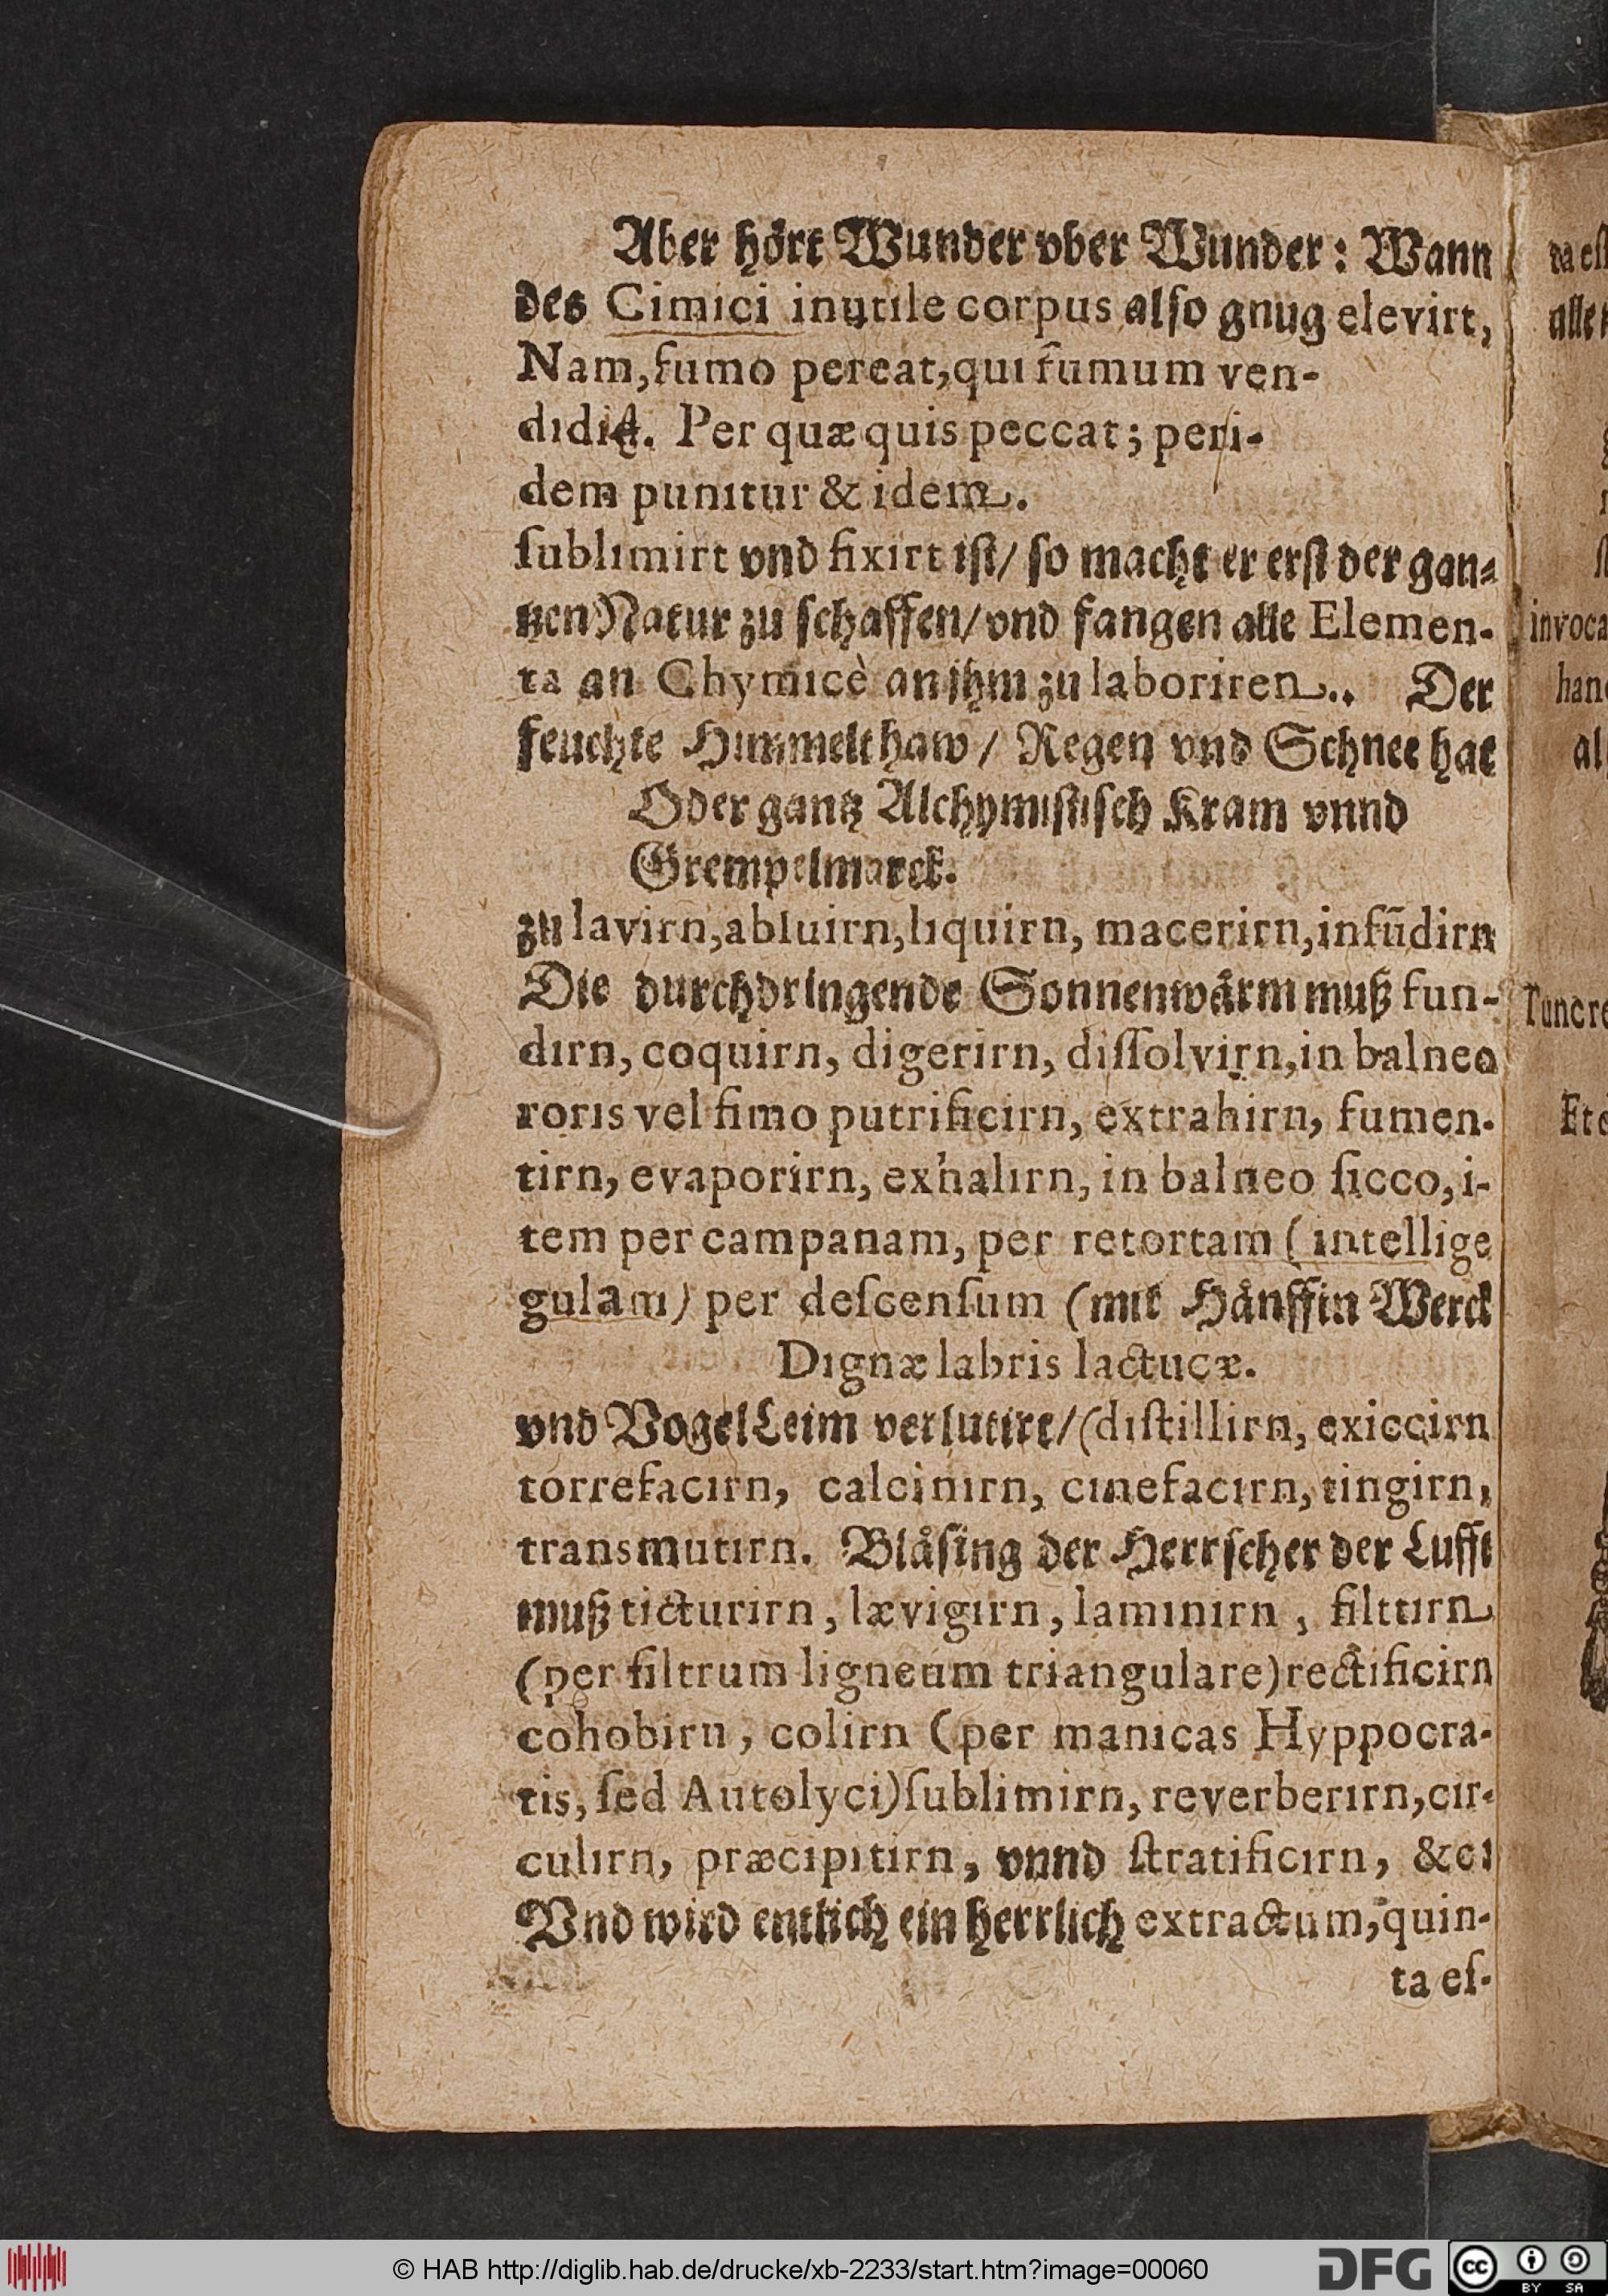 Aber hört Wunder vber Wunder: Wann
des Cimici inutile corpus also gnug elevirt,
Nam, fumo pereat, qui fumum ven-
didit. Per quæ quis peccat; peri-
dem punitur & idem.
ſublimirt vnd fixirt iſt/ ſo macht er erſt der gan-
tzen Natur zu ſchaffen/ vnd fangen alle Elemen-
ta an Chymicè an jhm zu laboriren.. Der
feuchte Himmelthaw / Regen vnd Schnee hat
Oder gantz Alchymiſtiſch Kram vnnd
Grempelmarck.
zu lavirn, abluirn, liquirn, macerirn, infūdirn
Die durchdringende Sonnenwårm muß fun-
dirn, coquirn, digerirn, diſſolvirn, in balneo
roris vel fimo putrificirn, extrahirn, fumen-
tirn, evaporirn, exhalirn, in balneo ſicco, i-
tem per campanam, per retortam (intellige
gulam) per deſcenſum (mit Hånffin Werck
Dignæ labris lactucæ.
vnd VogelLeim verlutirt/ (diſtillirn, exiccirn
torrefacirn, calcinirn, cinefacirn, tingirn,
transmutirn. Blåſing der Herrſcher der Lufft
muß ticturirn, lævigirn, laminirn, filttirn
(per filtrum ligneum triangulare) rectificirn
cohobirn, colirn (per manicas Hyppocra-
tis, ſed Autolyci) ſublimirn, reverberirn, cir-
culirn, præcipitirn, vnnd ſtratificirn, &c:
Vnd wird entlich ein herrlich extractum, quin-
ta eſ-
da eſt
aller
invoca
hand
Tunc re
© HAB http://diglib.hab.de/drucke/xb-2233/start.htm?image=00060
DFG
cc
BY SA